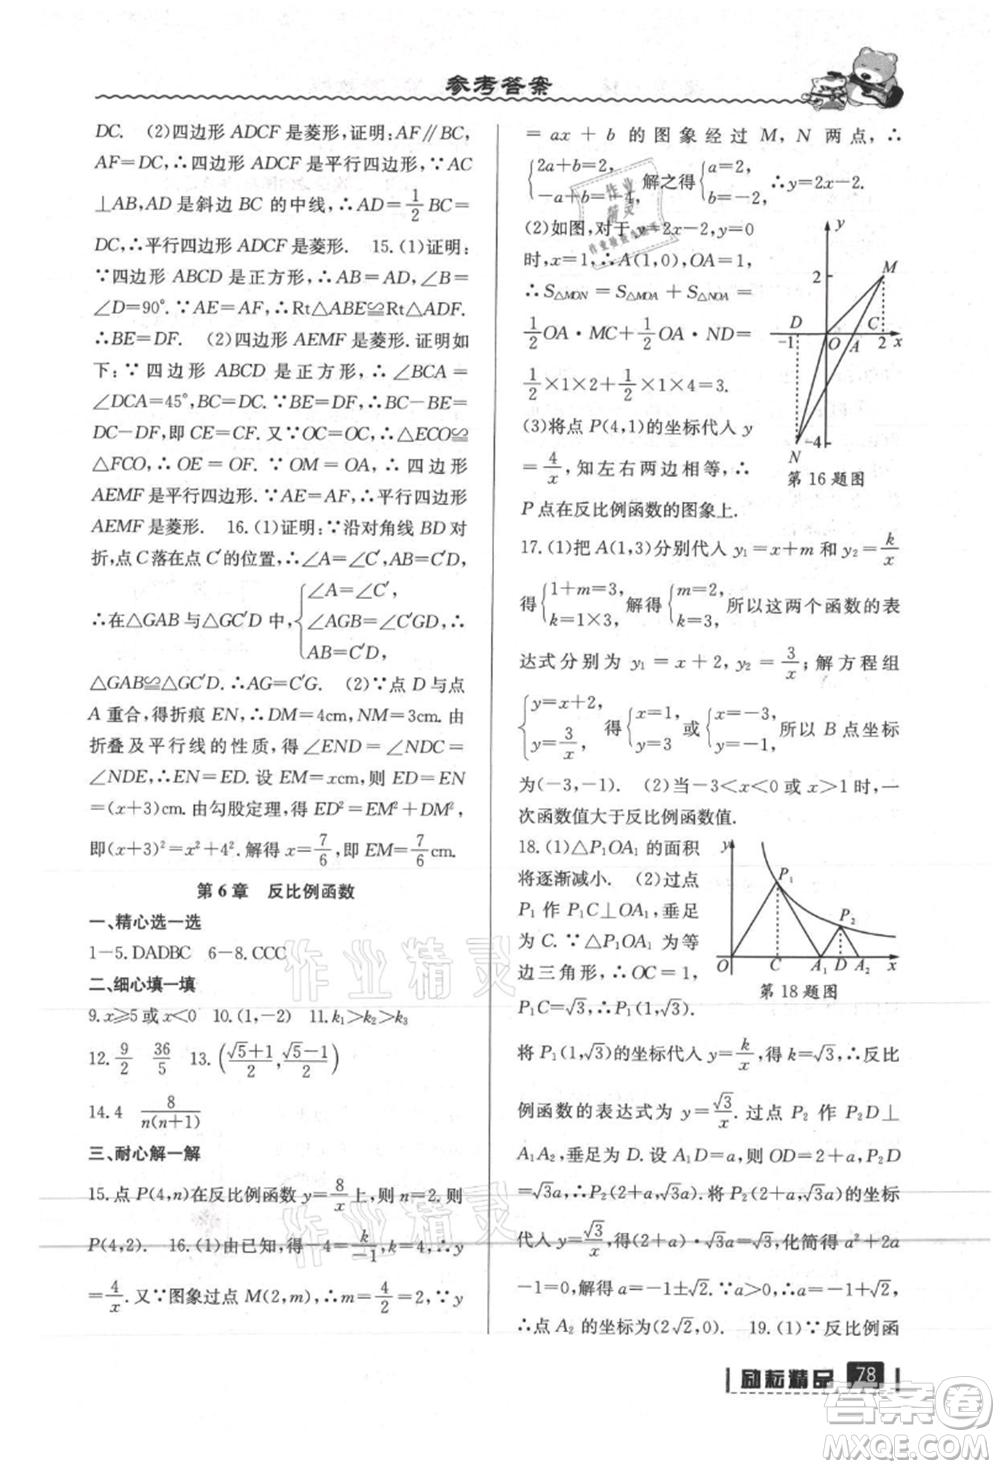 参考答案
DC. (2)四边形 ADCF 是菱形,证明:AF∥BC,
AF=DC,∴四边形 ADCF 是平行四边形,∵AC
⊥AB,AD 是斜边 BC 的中线,∴AD=1/2 BC
=DC,∴平行四边形 ADCF 是菱形. 15.(1)证明:
∵四边形 ABCD 是正方形,∴AB=AD,∠B=
∠D=90°. ∵AE=AF,∴Rt△ABE≌Rt△ADF.
∴BE=DF. (2)四边形 AEMF 是菱形.证明如
下:∵四边形 ABCD 是正方形,∴∠BCA=
∠DCA=45°,BC=DC. ∵BE=DF,∴BC-BE=
DC-DF,即 CE=CF. 又∵OC=OC,∴△ECO≌
△FCO,∴OE=OF. ∵OM=OA,∴四边形
AEMF 是平行四边形. ∵AE=AF,∴平行四边形
AEMF 是菱形. 16.(1)证明:∵沿对角线 BD 对
折,点 C 落在点 C′的位置,∴∠A=∠C′,AB=C′D,
∴在△GAB与△GC′D中,{∠A=∠C′, ∠AGB=∠C′GD,∴ AB=C′D,
△GAB≌△GC′D.∴AG=C′G. (2)∵点 D 与点
A 重合,得折痕 EN,∴DM=4cm,NM=3cm. 由
折叠及平行线的性质,得∠END=∠NDC=
∠NDE,∴EN=ED. 设 EM=xcm,则 ED=EN
=(x+3)cm. 由勾股定理,得 ED²=EM²+DM²,
即(x+3)²=x²+4². 解得 x=7/6,即 EM=7/6 cm.
第 6 章 反比例函数
一、精心选一选
1-5. DADBC 6-8. CCC
二、细心填一填
9. x≥5 或 x<0 10. (1,-2) 11. k₁>k₂>k₃
12. 9/2 36/5 13. ((√5+1)/2,(√5-1)/2)
14. 4 8/n(n+1)
三、耐心解一解
15. 点 P(4,n)在反比例函数 y=8/x 上,则 n=2. 则
P(4,2). 16.(1)由已知,得-4=k/-1,k=4,∴y
=4/x. 又∵图象过点 M(2,m),∴m=4/2=2,∵y
=ax+b 的图象经过 M,N 两点,∴
{2a+b=2, -a+b=-4, 解之得{a=2, b=-2. ∴y=2x-2.
(2)如图,对于 y=2x-2,y=0
时,x=1,∴A(1,0),OA=1,
∴S△MON=S△MOA+S△NOA=
1/2 OA·MC+1/2 OA·ND=
1/2×1×2+1/2×1×4=3.
(3)将点 P(4,1)的坐标代入 y
=4/x,知左右两边相等,∴
P 点在反比例函数的图象上.
y
M
2
D
C
-1
O
A
2
x
-4
N
第 16 题图
17. (1)把 A(1,3)分别代入 y₁=x+m 和 y₂=k/x
得{1+m=3, k=1×3, 解得{m=2, k=3, 所以这两个函数的表
达式分别为 y₁=x+2,y₂=3/x;解方程组
{y=x+2, y=3/x 得{x=1, y=3 或{x=-3, y=-1. 所以 B 点坐标
为(-3,-1). (2)当-3<x<0 或 x>1 时,一
次函数值大于反比例函数值.
18. (1)△P₁OA₁ 的面积
将逐渐减小. (2)过点
P₁ 作 P₁C⊥OA₁,垂足
为 C. ∵△P₁OA₁ 为等
边三角形,∴OC=1,
P₁C=√3,∴P₁(1,√3).
y
P₁
P₂
O
C
A₁
D
A₂
x
第 18 题图
将 P₁(1,√3)的坐标代入 y=k/x,得 k=√3,∴反比
例函数的表达式为 y=√3/x. 过点 P₂ 作 P₂D⊥
A₁A₂,垂足为 D. 设 A₁D=a,则 OD=2+a,P₂D
=√3a,∴P₂(2+a,√3a). 将 P₂(2+a,√3a)的坐标
代入 y=√3/x,得(2+a)·√3a=√3,化简得 a²+2a
-1=0,解得 a=-1±√2. ∵a>0,∴a=-1+√2,
∴点 A₂ 的坐标为(2√2,0). 19. (1)∵反比例函
励耘精品 78
作业精灵
作业精灵
作业精灵
答案卷
MXQE.COM